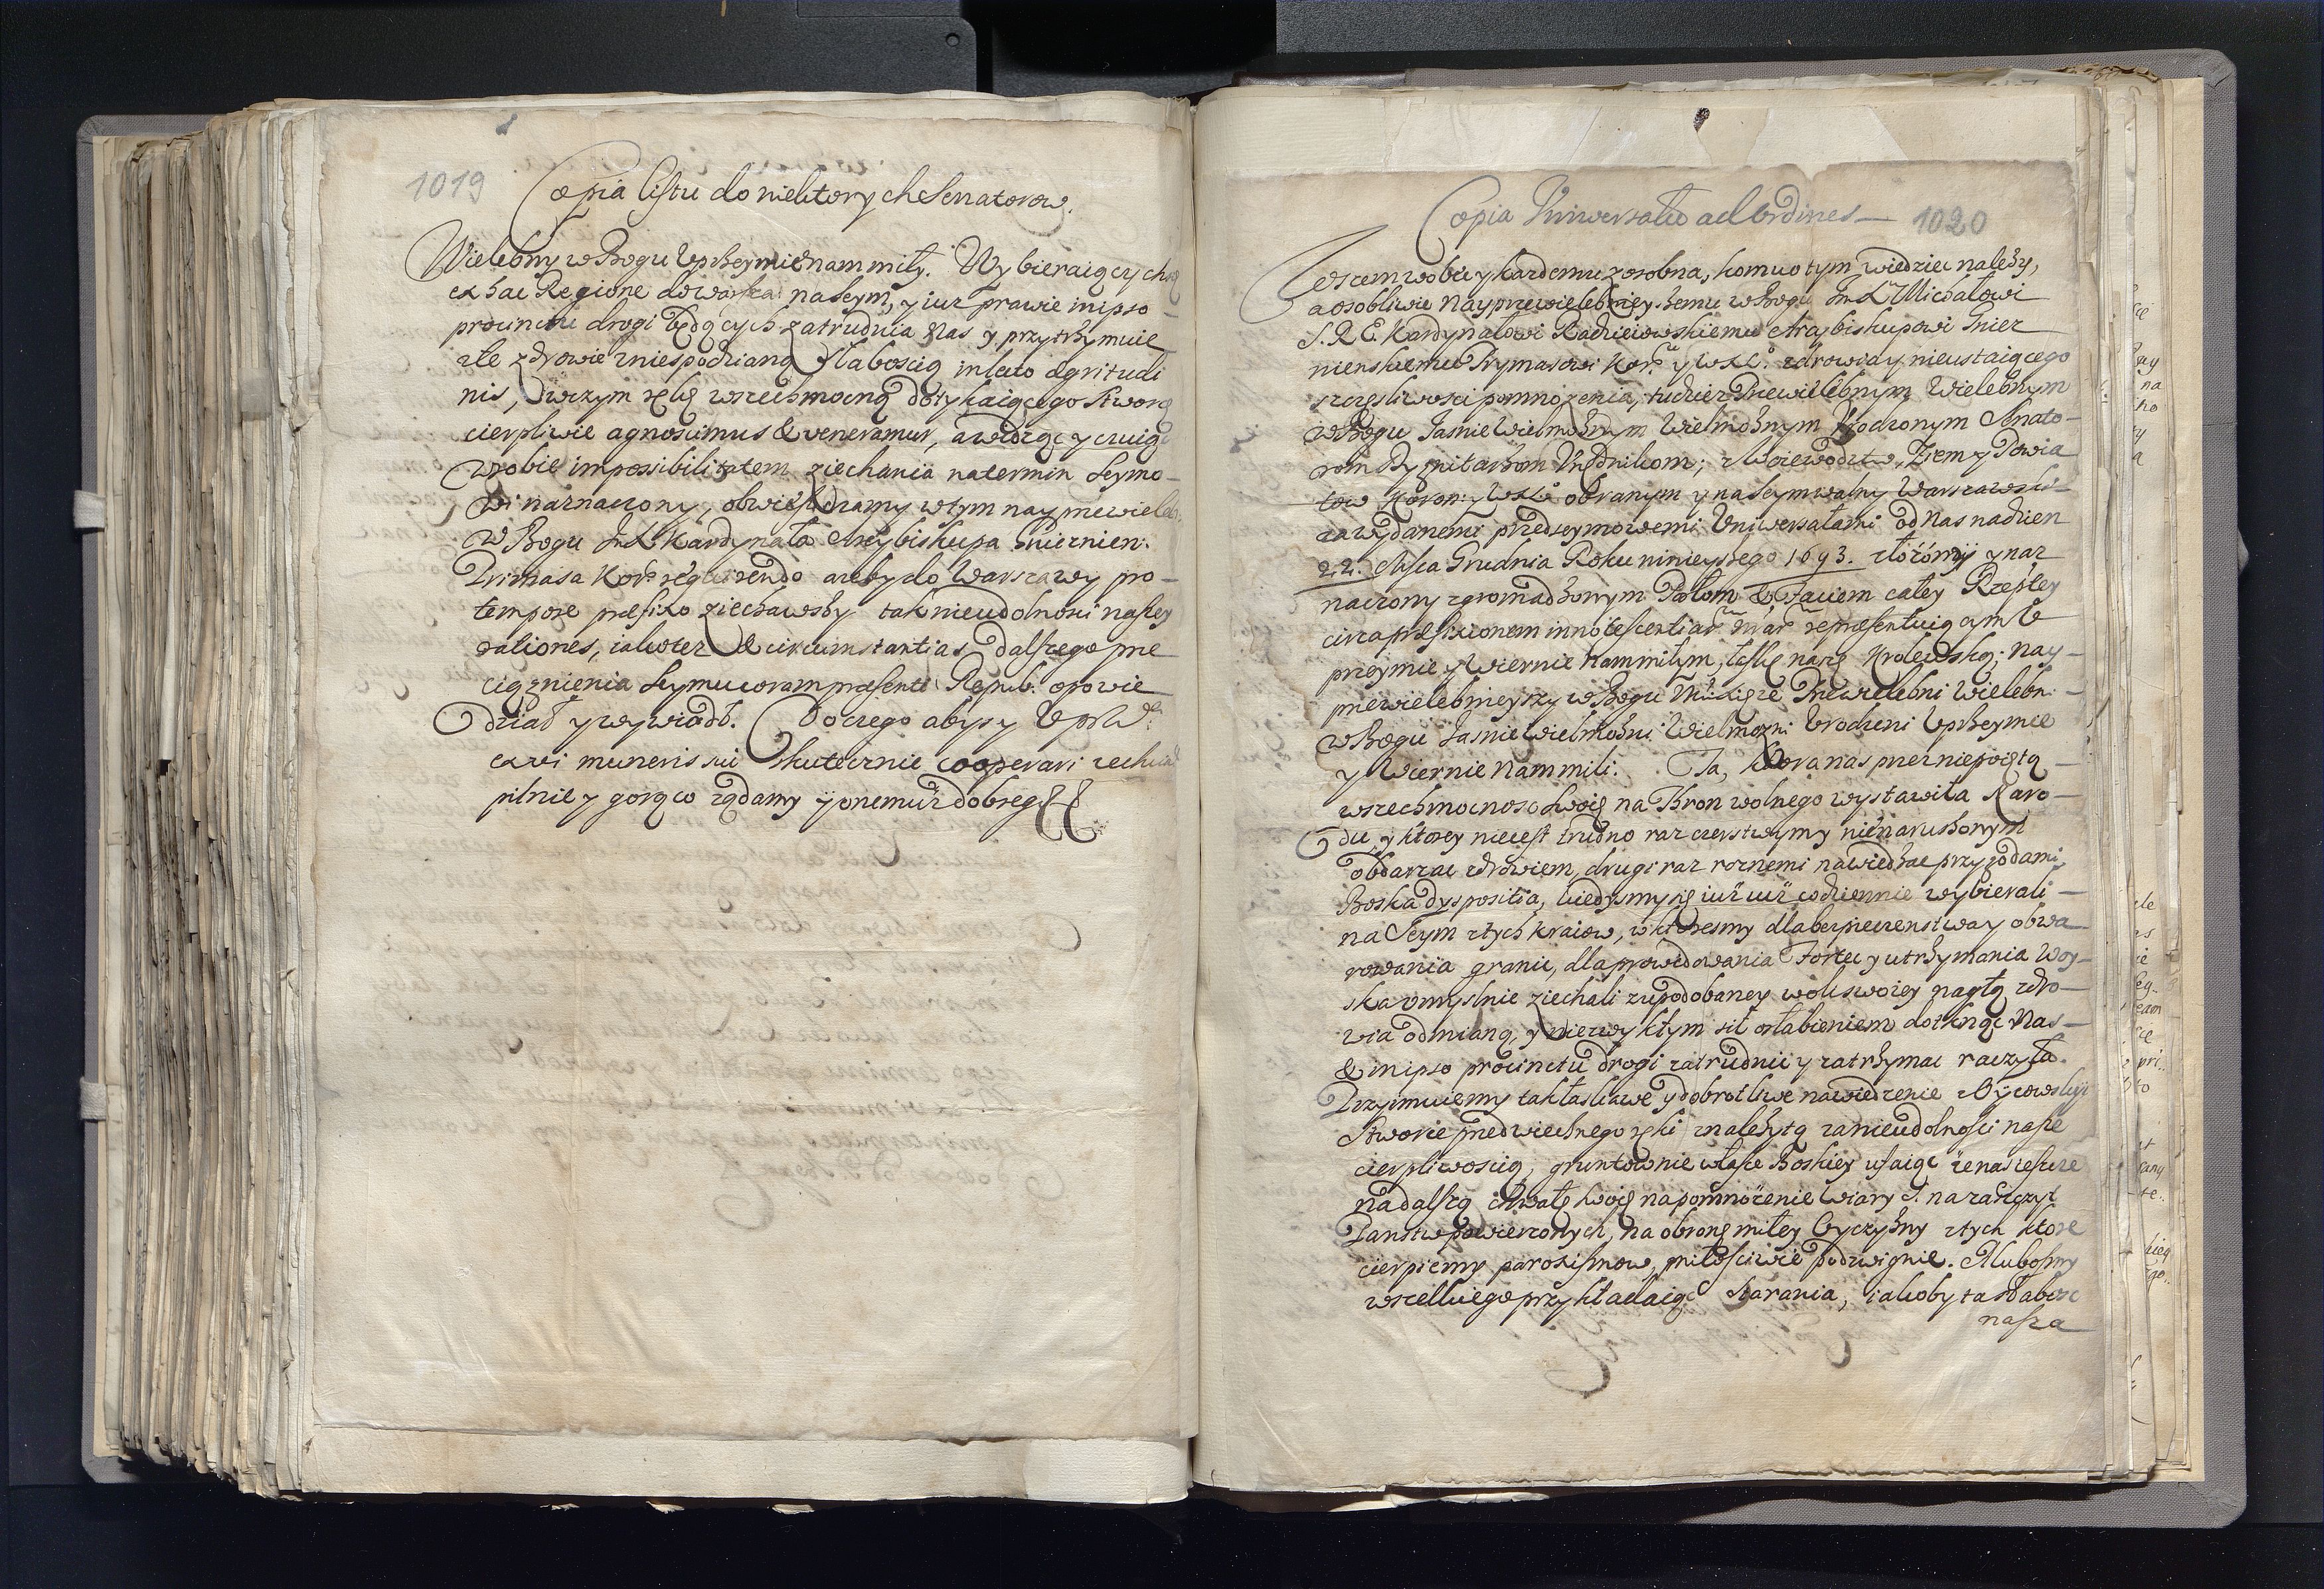 1019
Copia listu do niektorych Senatorow.
Wielebny w Bogu Uprzeymie nam miły. Wybieraiących
ex hac Regione do Warsza: na Seym, y iuz prawie in ipso
procinctu drogi będących zatrudnia Nas y przytrzymuie
złe zdrowie z niespodzianą słaboscią in lecto aegritudi
nis, w czym rękę wszechmocną dotykaiącego Stworcę
cierpliwie agnoscimus & veneramur, a widząc y czuiąc
w sobie impossibilitatem ziechania na termin Seymo-
wi naznaczony, obwieszczamy w tym nayprzewieleb:
w Bogu Kardynała Arcybiskupa Gnieznien:
Primasa Kor: requirendo azeby do Warszawy pro
tempore praefixo ziechawszy tak nieudolnosci naszey
rationes, iako tez & circumstantias dalszego prze
ciągnienia Seymu coram praesenti Repub: opowie
dział y wywiodł. Do czego abyscy Uprze
ex vi muneris sui skutecznie cooperari zechcia
pilnie y gorąco ządamy y onemuz dobrego
Copia Uniwersału ad Ordines 1020
Wszem wobec y kazdemu z osobna, komu o tym wiedziec nalezy,
a osobliwie Nayprzewielebnieyszemu w Bogu Michałowi
S. R. E. Kardynałowi Radzieiowskiemu Arcybiskupowi Gniez
nienskiemu Prymasowi Kor: y W.X.L: zdrowia y nieustaiącego
szczęsliwosci pomnozenia, tudziez Przewielebnym Wielebnym
w Bogu Jasnie Wielmożnym Wielmożnym Urodzonym Senato-
rom Dygnitarzom Urzędnikom; z Woiewodztw, Ziem y Powia
tow Koron: y W.X.L: obranym y na Seym walny Warszawski
za wydanemi przedseymowemi Uniwersałami od Nas na dzien
22. Msca Grudnia Roku ninieyszego 1693. złożony y naz
naczony zgromadzonym Posłom & faciem całey Rzeptey
circa praefixionem innotescentiar: repraesentuiącym U
przeymie y Wiernie Nam miłym, łaskę naszę Krolewską; Nay-
przewielebnieyszy w Bogu Przewielebni Wielebni
w Bogu Jasnie Wielmożni Wielmożni Urodzeni Uprzeymie
y Wiernie Nam mili. Ta, ktora nas przez niepoiętą
wszechmocnosc swoię na Thron wolnego wystawiła Naro-
du, y ktorey nie iest trudno raz czerstwym y nienaruszonym
obdarzac zdrowiem, drugi raz roznemi nawiedzac przygodami
Boska dyspositia, kiedysmy się iuz iuz codziennie wybierali
na Seym z tych kraiow, w ktoresmy dla bezpieczenstwa y obwa
rowania granic, dla prowidowania Fortec y utrzymania Woy-
ska umyslnie ziechali z upodobaney woli swoiey nagłą zdro-
wia odmianą, y niezwykłym sił osłabieniem dotknąc Nas
& in ipso procinctu drogi zatrudnic y zatrzymac raczyła.
Przyimuiemy tak łaskawe y dobrotliwe nawiedzenie z Oycowskiey
Stworce przedwiecznego ręki z nalezytą za nieudolnosci nasze
cierpliwoscią, gruntownie w łasce Boskiey ufaiąc ze nas ieszcze
na dalszą chwałę swoię na pomnożenie Wiary S. na zaszczyt
Panstw powierzonych, na obronę miłey Oyczyzny z tych ktore
cierpiemy paroxismow, miłosciwie podzwignie. A lubosmy
wszelkiego przykładaiąc starania, iakoby ta słabosc
nasza